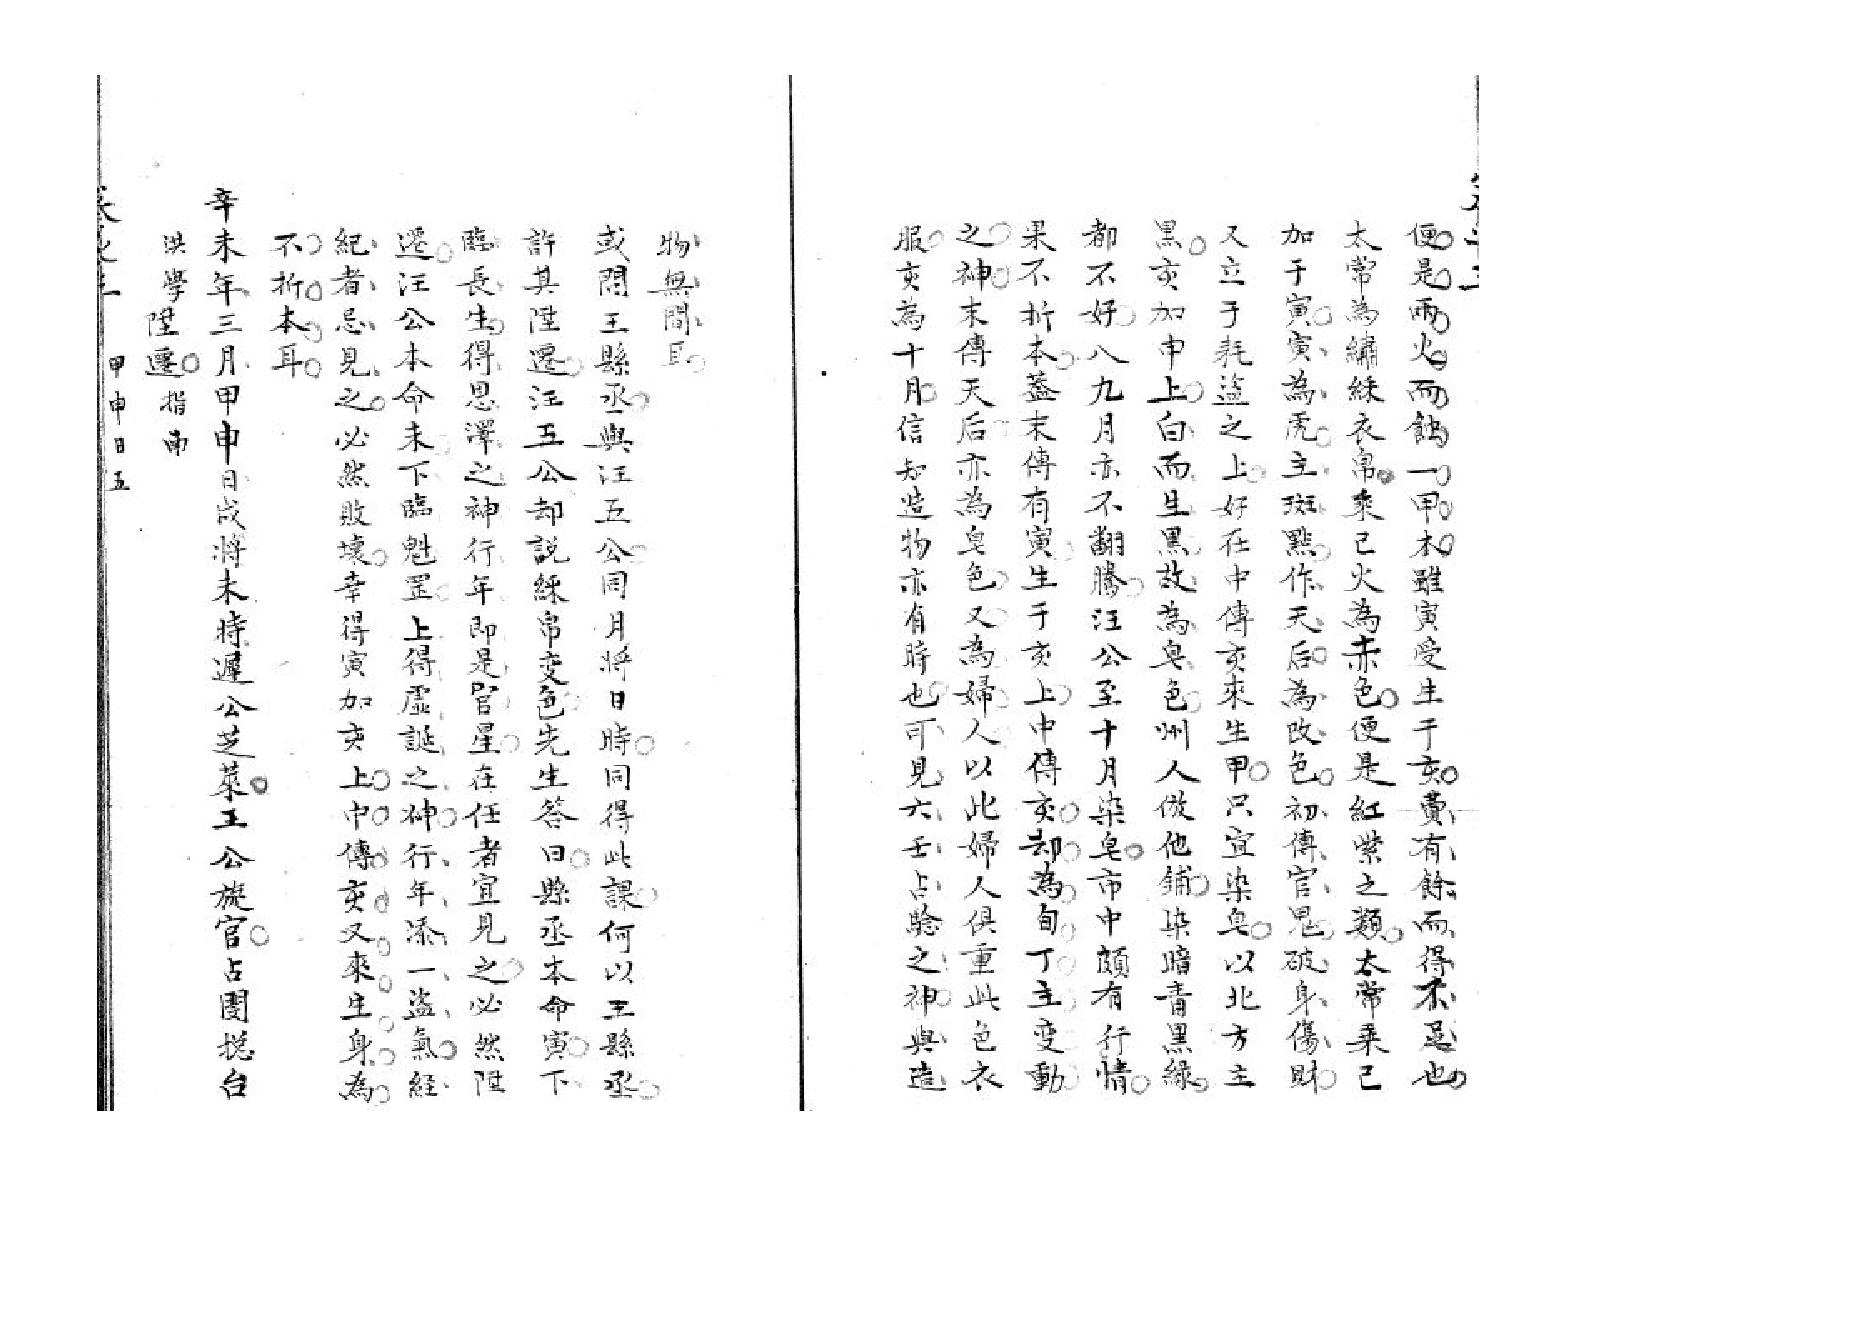 便是兩火而蝕一甲木雖寅受生于亥費有餘而得不足也
太常為繡綵衣帛乘己火為赤色便是紅紫之類太常乗己
加于寅寅為虎主斑點作天后為改色初傳官鬼破身傷財
又立于耗盜之上好在中傳亥來生甲只宜染皂以北方主
黑亥加申上白而生黑故為皂色州人倣他鋪染暗青黑綠
都不好八九月亦不翻騰汪公至十月染皂市中頗有行情
果不折本蓋末傳有寅生于亥上中傳亥却為旬丁主變動
之神末傳天后亦為皂色又為婦人以此婦人俱重此色衣
服亥為十月信知造物亦有時也可見六壬占驗之神與造
物無間耳
或問王縣丞與汪五公同月將日時同得此課何以王縣丞
許其陞遷汪五公却説綵帛变色先生答曰縣丞本命寅下
臨長生得恩澤之神行年即是官星在任者宜見之必然陞
遷汪公本命未下臨魁罡上得虛誕之神行年添一盜氣経
紀者忌見之必然敗壞幸得寅加亥上中傳亥又來生身為
不折本耳
辛未年三月甲申日戌將未時遲公芝萊王公旋官占團捴台
洪學陞遷 指南
甲申日五